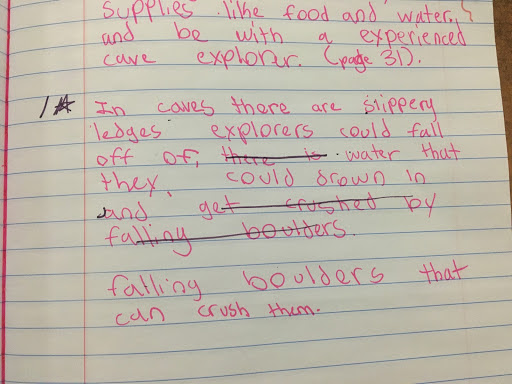 supplies like food and water,
and be with a experienced
cave explorer. (page 31).
1☆ In caves there are slippery
ledges explorers could fall
off of, there is water that
they could drown in
and get crushed by
falling boulders.
falling boulders that
can crush them.